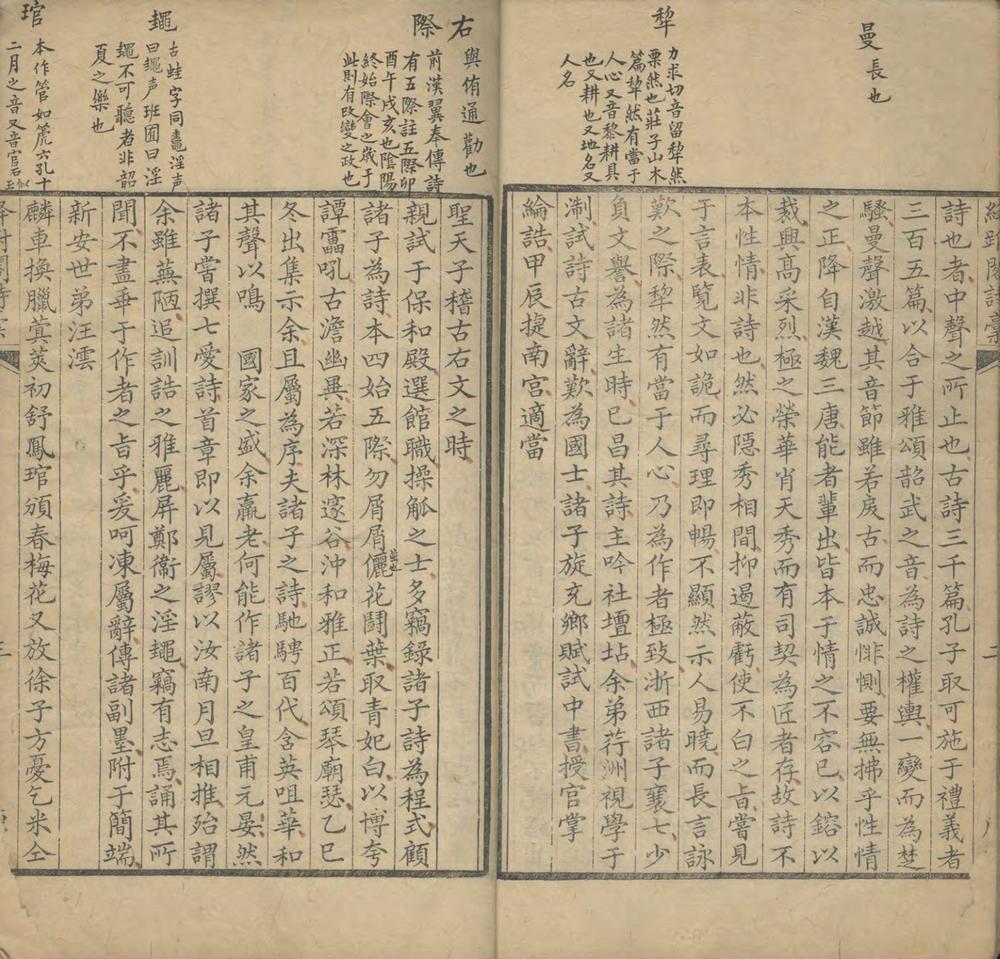 曼 長也
犂 力求切音留犂然
栗然也莊子山木
篇犂然有當于
人心又音黎耕具
也又耕也又地名又
人名
詩也者中聲之所止也古詩三千篇孔子取可施于禮義者
三百五篇以合于雅頌韶武之音為詩之權輿一變而為楚
騷曼聲激越其音節雖若戾古而忠誠悱惻要無拂乎性情
之正降自漢魏三唐能者輩出皆本于情之不容已以鎔以
裁興高采烈極之榮華肖天秀而有司契為匠者存故詩不
本性情非詩也然必隱秀相間抑遏蔽虧使不白之旨嘗見
于言表覽文如詭而尋理即暢不顯然示人易曉而長言詠
歎之際犂然有當于人心乃為作者極致浙西諸子襄七少
負文譽為諸生時已昌其詩主吟社壇坫余弟荇洲視學于
淛試詩古文辭歎為國士諸子旋充鄉賦試中書授官掌
綸誥甲辰㨗南宫適當
右 與侑通勸也
際 前漢翼奉傳詩
有五際註五際卯
酉午戌亥也隂陽
終始際會之歲于
此則有改變之政也
蠅 古蛙字同鼃淫声
曰蠅声班固曰淫
蠅不可聽者非韶
夏之樂也
琯 本作管如箎六孔十
二月之音又音官石似玉
聖天子稽古右文之時
親試于保和殿選館職操觚之士多竊録諸子詩為程式顧
諸子為詩本四始五際勿屑屑儷花鬪葉取青妃白以博夸
譚靁吼古澹幽異若深林邃谷沖和雅正若頌琴廟瑟乙巳
冬出集示余且屬為序夫諸子之詩馳騁百代含英咀華和
其聲以鳴 國家之盛余羸老何能作諸子之皇甫元晏然
諸子嘗撰七愛詩首章即以見屬謬以汝南月旦相推殆謂
余雖蕪陋追訓誥之雅麗屏鄭衞之淫蠅竊有志焉誦其所
聞不盡畔于作者之旨乎爰呵凍屬辭傳諸副墨附于簡端
新安世弟汪澐
麟車換臘蓂莢初舒鳳琯頒春梅花又放徐子方憂乞米仝